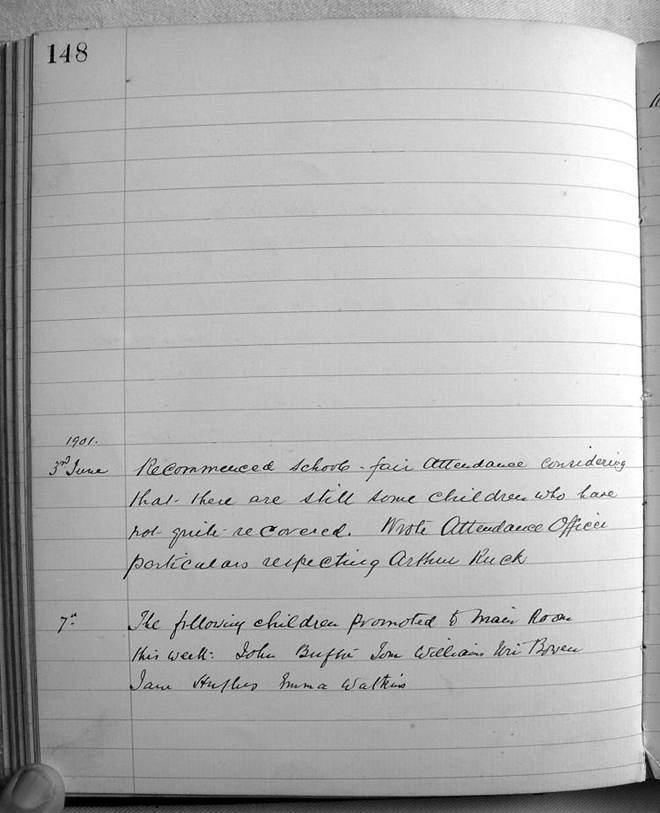 148
1901.
3rd June Recommenced School - fair Attendance considering
that there are still some children who have
not quite recovered. Wrote Attendance Officer
particulars respecting Arthur Ruck
7th The following children promoted to Main Room
this week: John Tom Williams Wm Bowen
Jane Hughes Emma Watkins